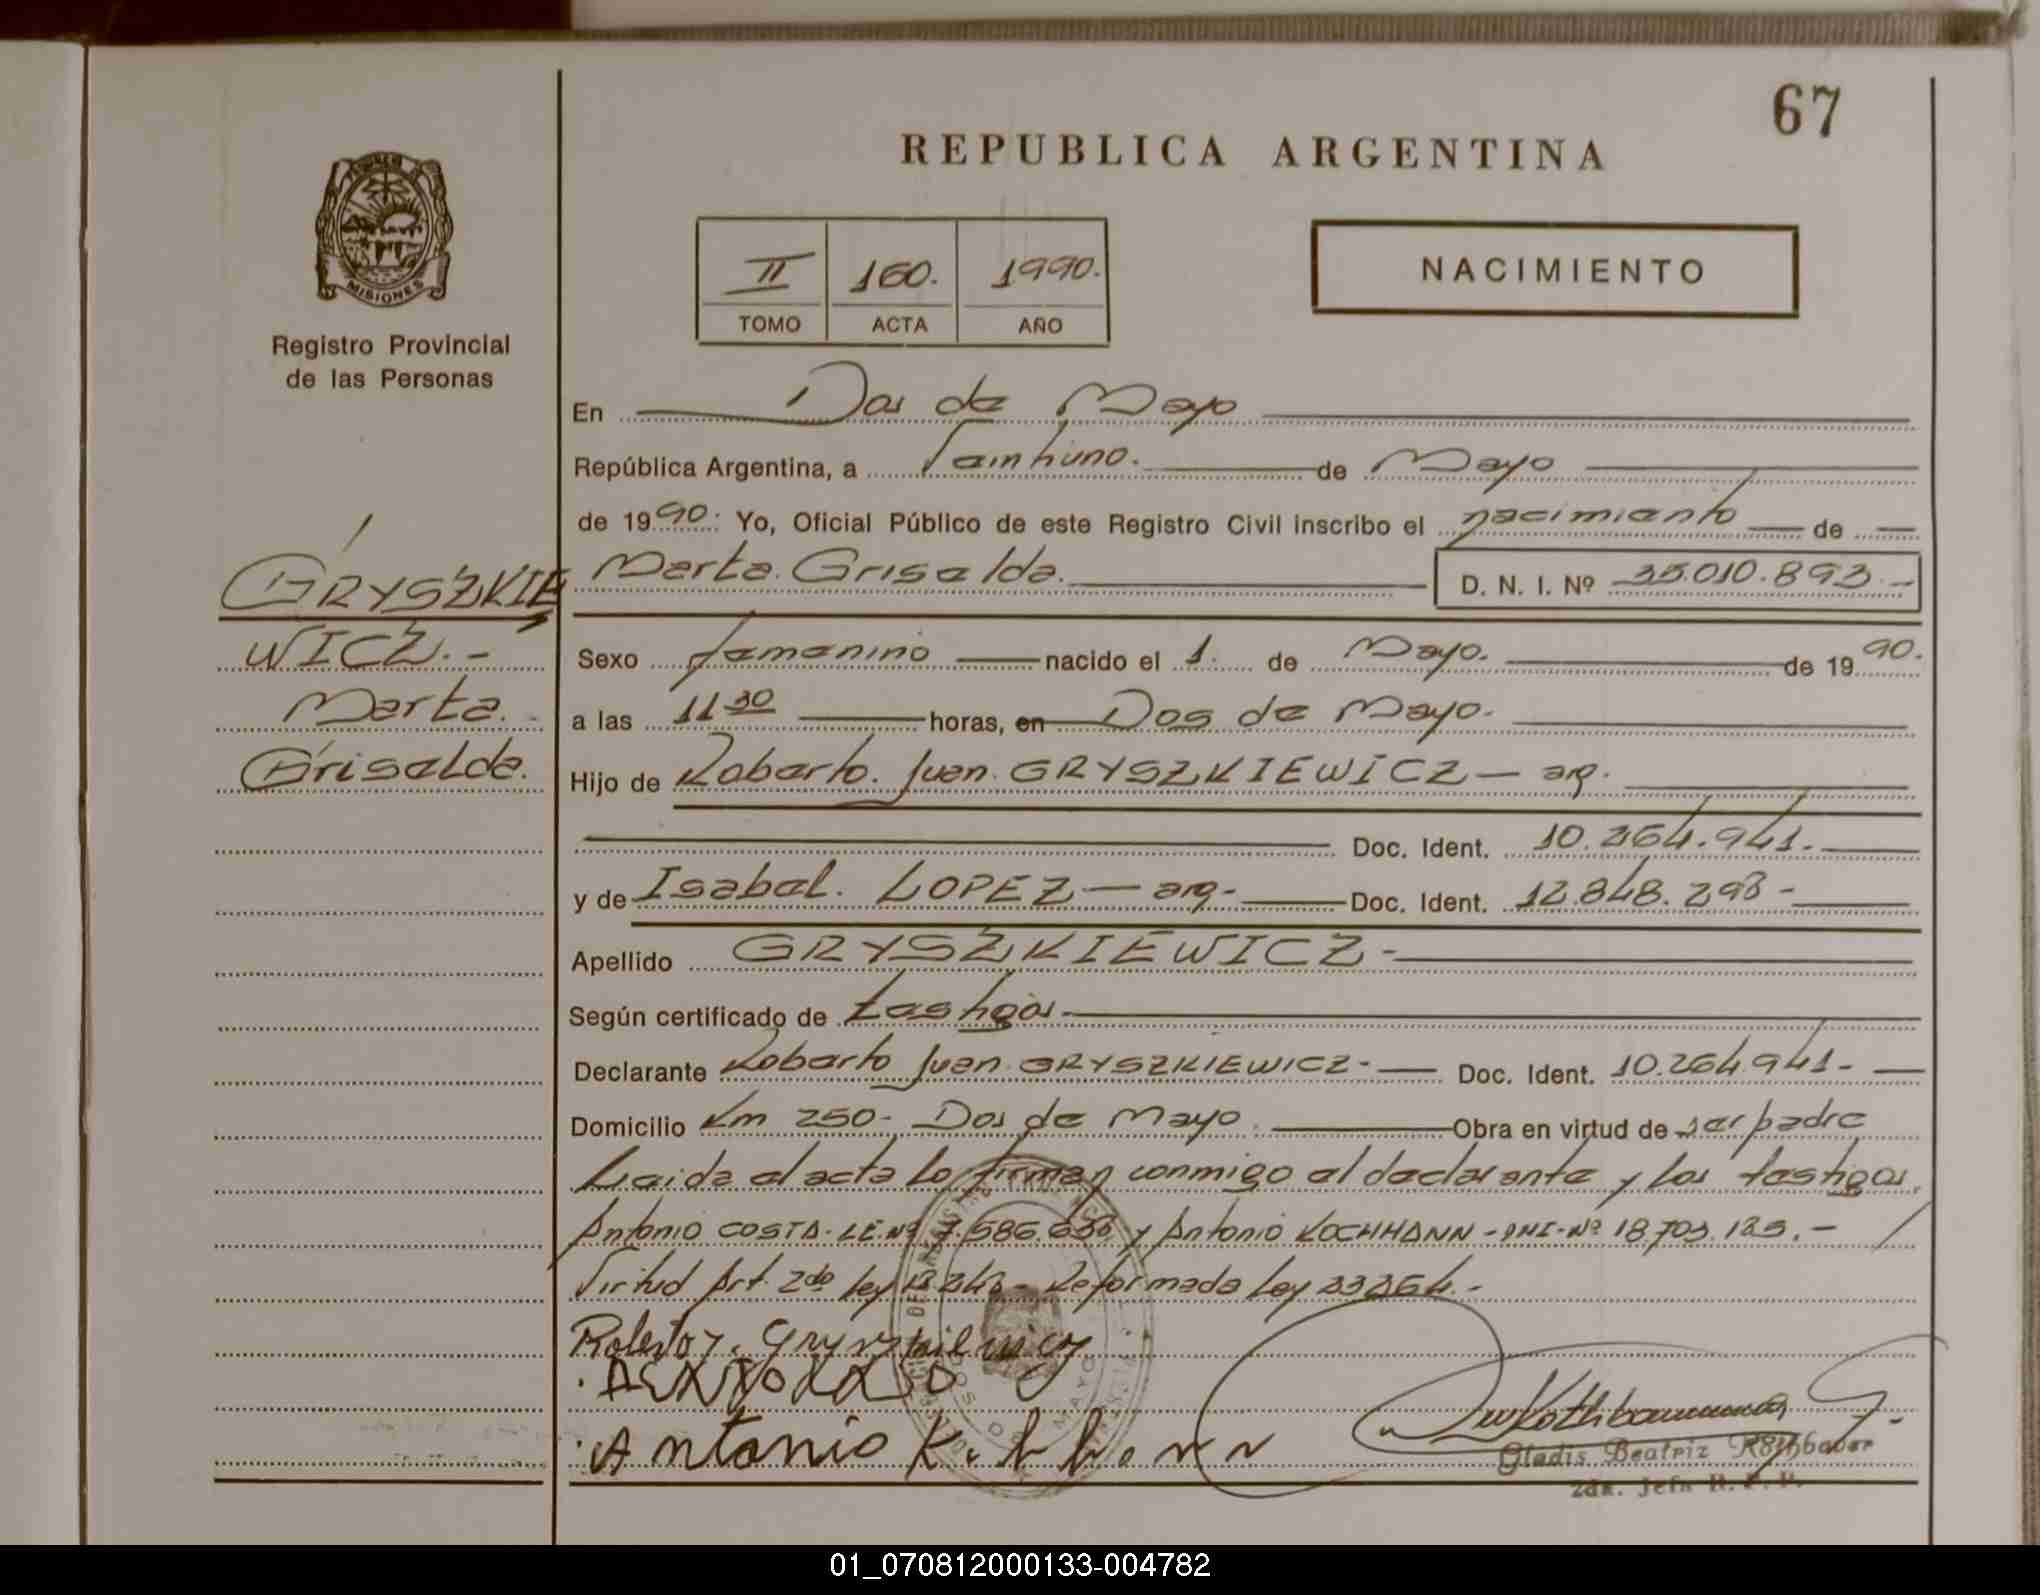 67
REPUBLICA ARGENTINA
MISIONES
Registro Provincial
de las Personas
II 160. 1990.
TOMO ACTA AÑO
NACIMIENTO
En Dos de Mayo
República Argentina, a Veintiuno. de Mayo
de 1990. Yo, Oficial Público de este Registro Civil inscribo el nacimiento de
Marta Griselda. D. N. I. Nº 35.010.893.-
GRYSZKIE
WICZ.-
Marta
Griselda.
Sexo femenino nacido el 1. de Mayo. de 1990.
a las 11 30 horas, en Dos de Mayo.
Hijo de Roberto Juan GRYSZKIEWICZ - arg.
Doc. Ident. 10.264.941.-
y de Isabel LOPEZ - arg- Doc. Ident. 12.848.298-
Apellido GRYSZKIEWICZ-
Según certificado de testigos-
Declarante Roberto Juan GRYSZKIEWICZ- Doc. Ident. 10.264.941-
Domicilio Km 250- Dos de Mayo. Obra en virtud de ser padre
Leida el acta lo firman conmigo el declarante y los testigos,
Antonio COSTA-LE.Nº 7.586. y Antonio KOCHHANN -DNI-Nº 18.703.
Virtud Art. 2do Ley Reformada Ley 23264.-
Roberto J. Gryszkiewicz
Antonio
Gladis Beatriz Rothbauer
2da. Jefa R. P. P.
01_070812000133-004782